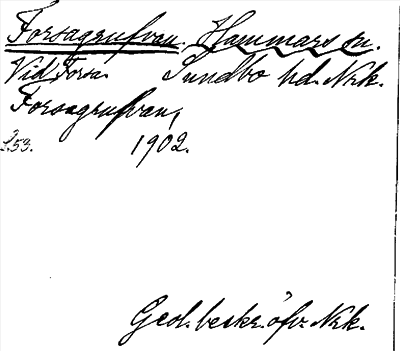 Forsagrufvan, Hammars sn.
Vid Forsa. Sundbo hd. Nrk.
Forsagrufvan,
S. 53. 1902.
Geol. beskr. öfv. Nrk.